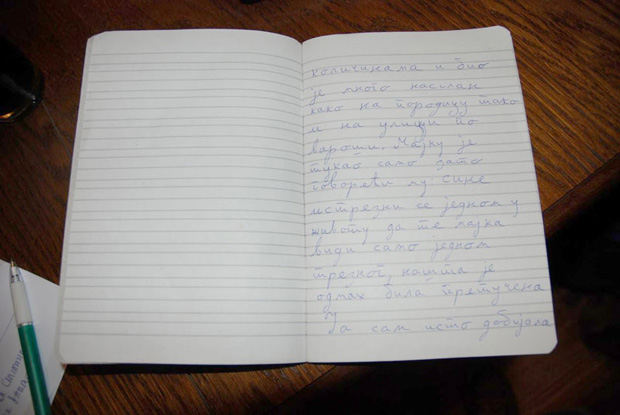 количинама и био
је много насилан
како на породицу тако
и на улици по
вароши. Мајку је
тукао само зато
говорећи му сине
истрезни се једном у
животу да те мајка
види само једном
трезног, нашта је
одмах била претучена
Ја сам исто добијала